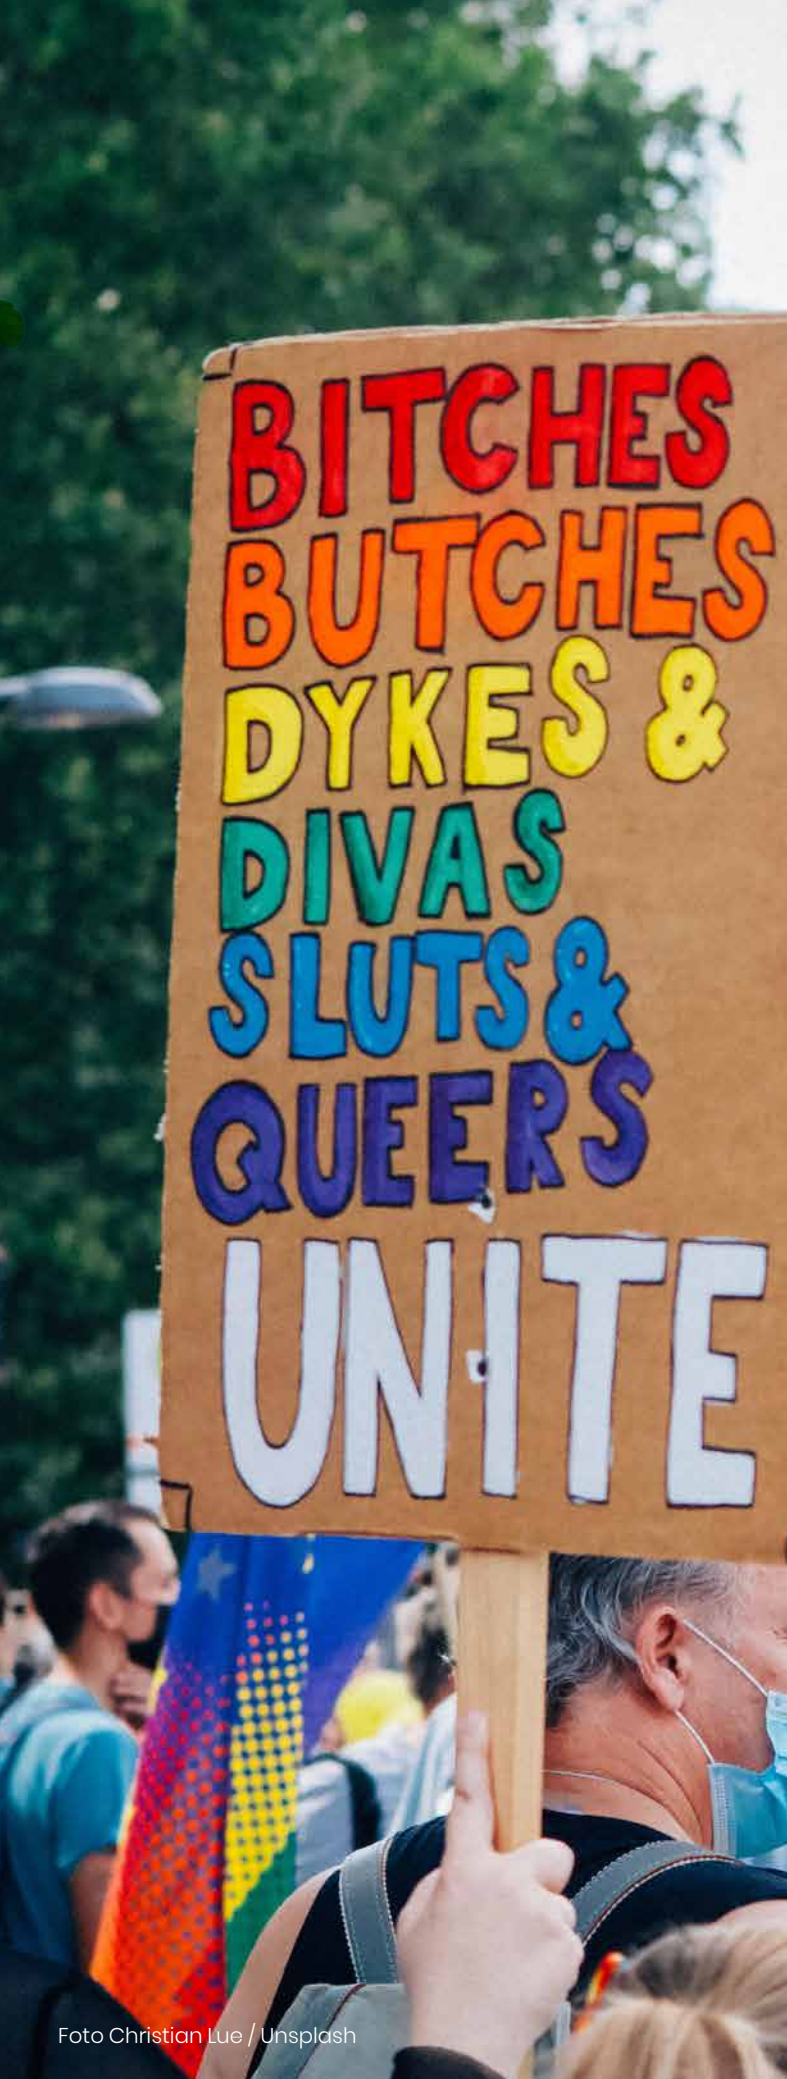 BITCHES
BUTCHES
DYKES &
DIVAS
SLUTS &
QUEERS
UNITE
Foto Christian Lue / Unsplash